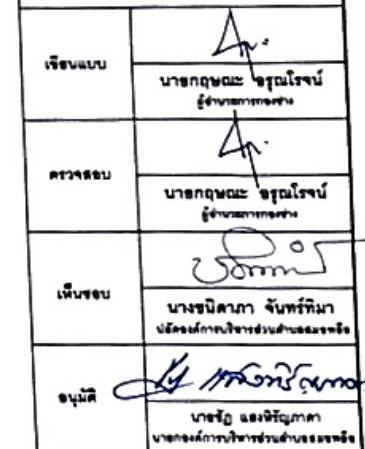 เขียนแบบ
นายกฤษณะ อรุณโรจน์
ผู้อำนวยการกองช่าง
ตรวจสอบ
นายกฤษณะ อรุณโรจน์
ผู้อำนวยการกองช่าง
เห็นชอบ
นางชนิดาภา จันทร์ทิมา
ปลัดองค์การบริหารส่วนตำบลสมอพลือ
อนุมัติ
นายชัฏ แสงหิรัญภาคา
นายกองค์การบริหารส่วนตำบลสมอพลือ